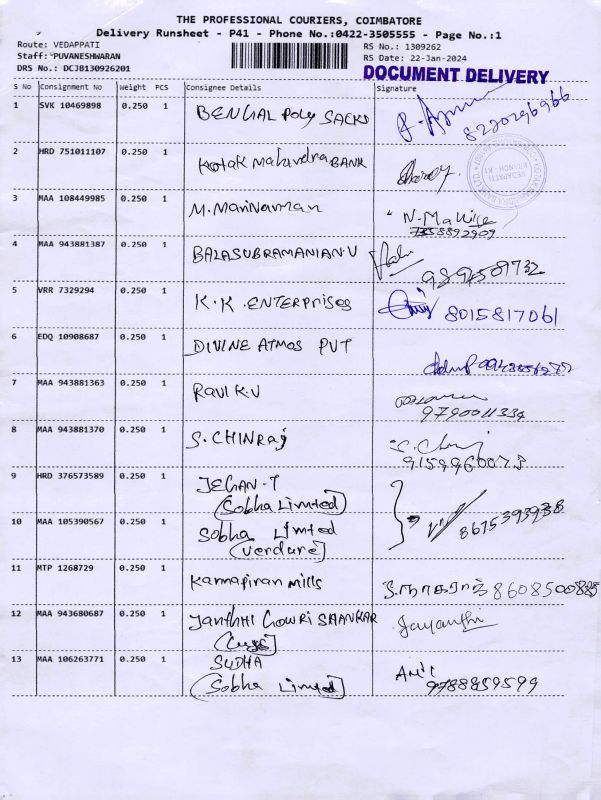 THE PROFESSIONAL COURIERS, COIMBATORE
Delivery Runsheet - P41 - Phone No.:0422-3505555 - Page No.:1
Route: VEDAPPATI
Staff: PUVANESHWARAN
DRS No.: DCJB130926201
RS No.: 1309262
RS Date: 22-Jan-2024
DOCUMENT DELIVERY
S No Consignment No Weight PCS Consignee Details Signature
1 SVK 10469898 0.250 1 BENGAL Poly SACKS 8220296966
2 HRD 751011107 0.250 1 Kotak Mahindra BANK
3 MAA 108449985 0.250 1 M. Marinarman
7358892909
4 MAA 943881387 0.250 1 BALASUBRAMANIAN.V
9894509732
5 VRR 7329294 0.250 1 K.K.ENTERPRISES 8015817061
6 EDQ 10908687 0.250 1 DIVINE ATMOS PVT
7 MAA 943881363 0.250 1 RAVI K.V
9790011334
8 MAA 943881370 0.250 1 S. CHINRAJ
9159960073
9 HRD 376573589 0.250 1 JEHAN-T
(Sobha Limited)
8675393938
10 MAA 105390567 0.250 1 Sobha Limited
(Verdure)
11 MTP 1268729 0.250 1 Kannapiran mills த.நாகராஜ் 8608500885
12 MAA 943680687 0.250 1 Janthhi Gowri SAANKAR Jayanthi
13 MAA 106263771 0.250 1 SUDHA
(Sobha Limited)
Anil
9788859599